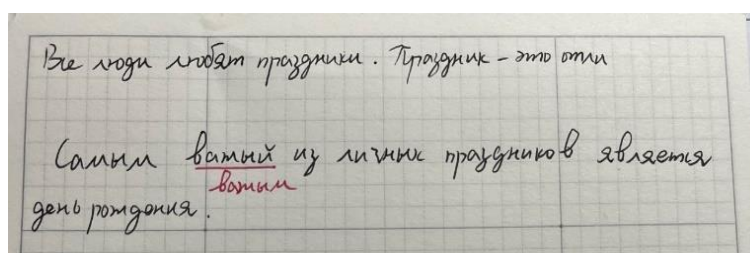 Все люди любят праздники. Праздник - это отли
Самым ватый из личных праздников является
ватым
день рождения.